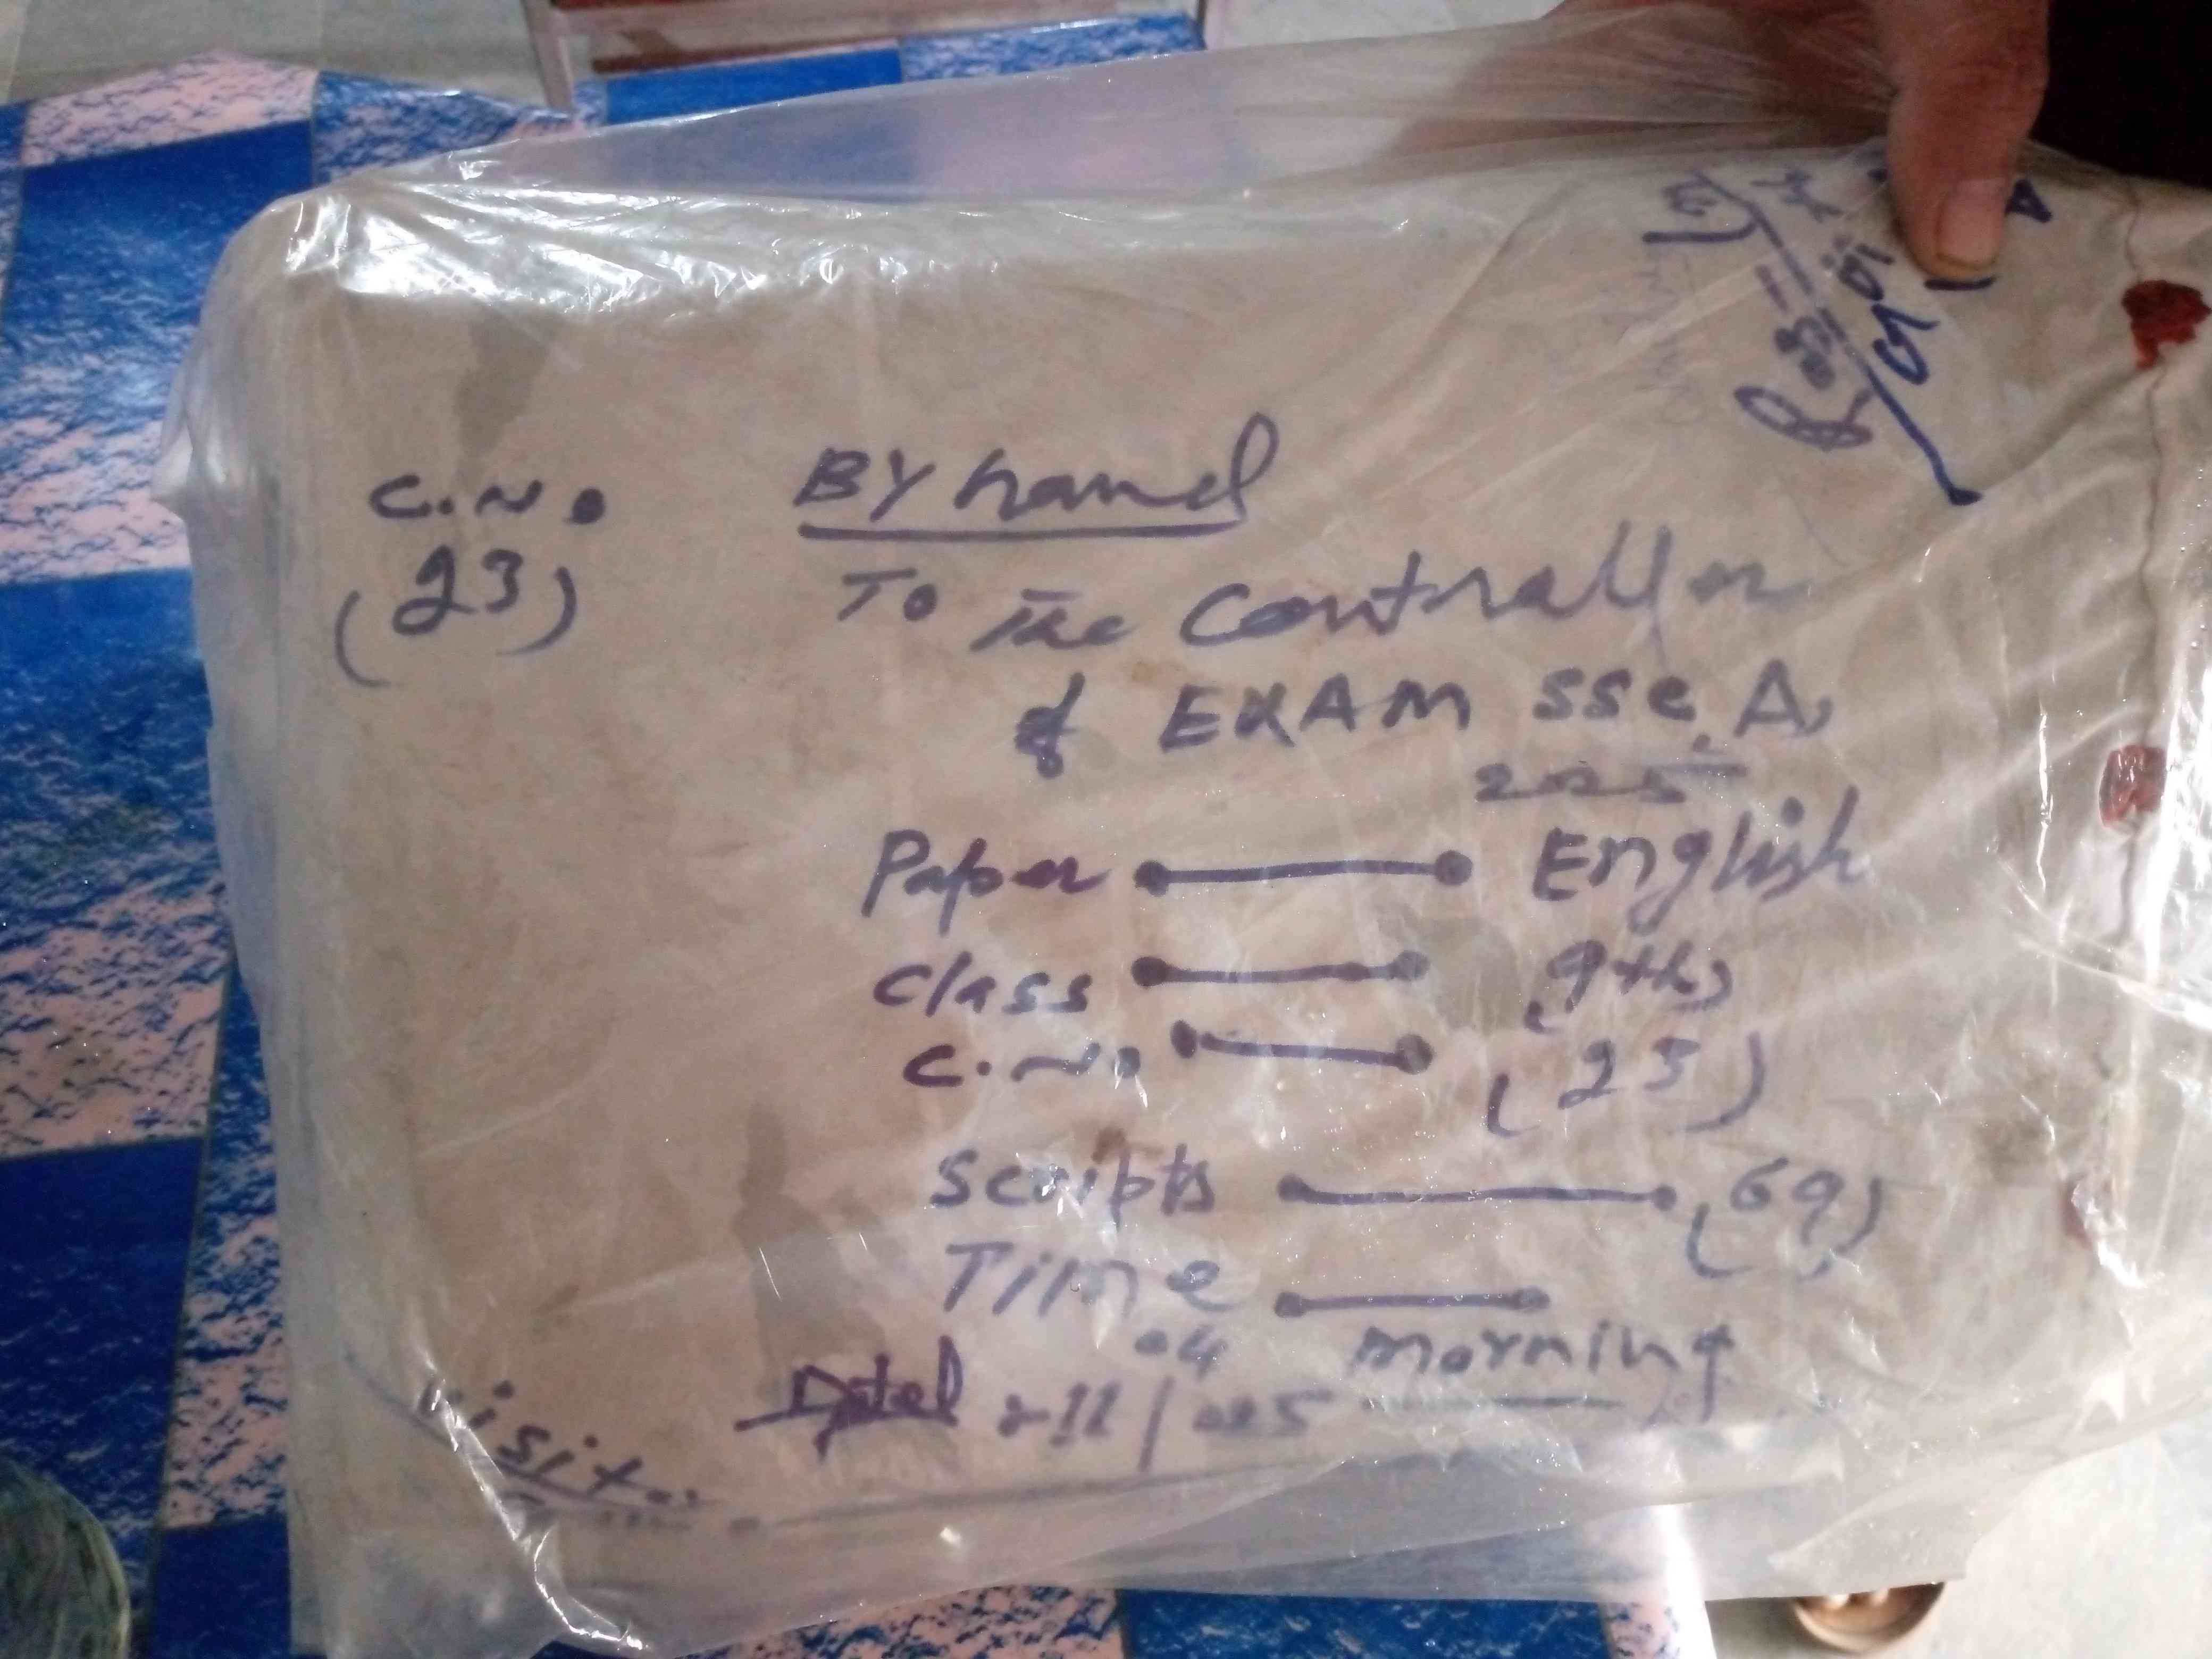 C.No
(23)
BY hand
To The Controller
of EXAM SSC, A,
2025
Paper English
Class 9th
C.No. (23)
Scripts (69)
Time
Morning
Dated